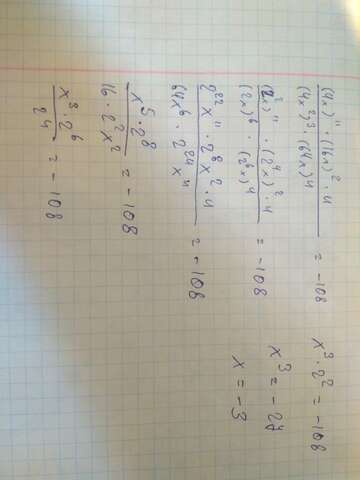 (4x)¹¹ · (16x)² · 4 / (4x²)³ · (64x)⁴ = -108
(2²x)¹¹ · (2⁴x)² · 4 / (2x)⁶ · (2⁶x)⁴ = -108
2²² x¹¹ · 2⁸ x² · 4 / 64x⁶ · 2²⁴ x⁴ = -108
x⁵ · 2⁸ / 16 · 2² x² = -108
x³ · 2⁶ / 2⁴ = -108
x³ · 2² = -108
x³ = -27
x = -3